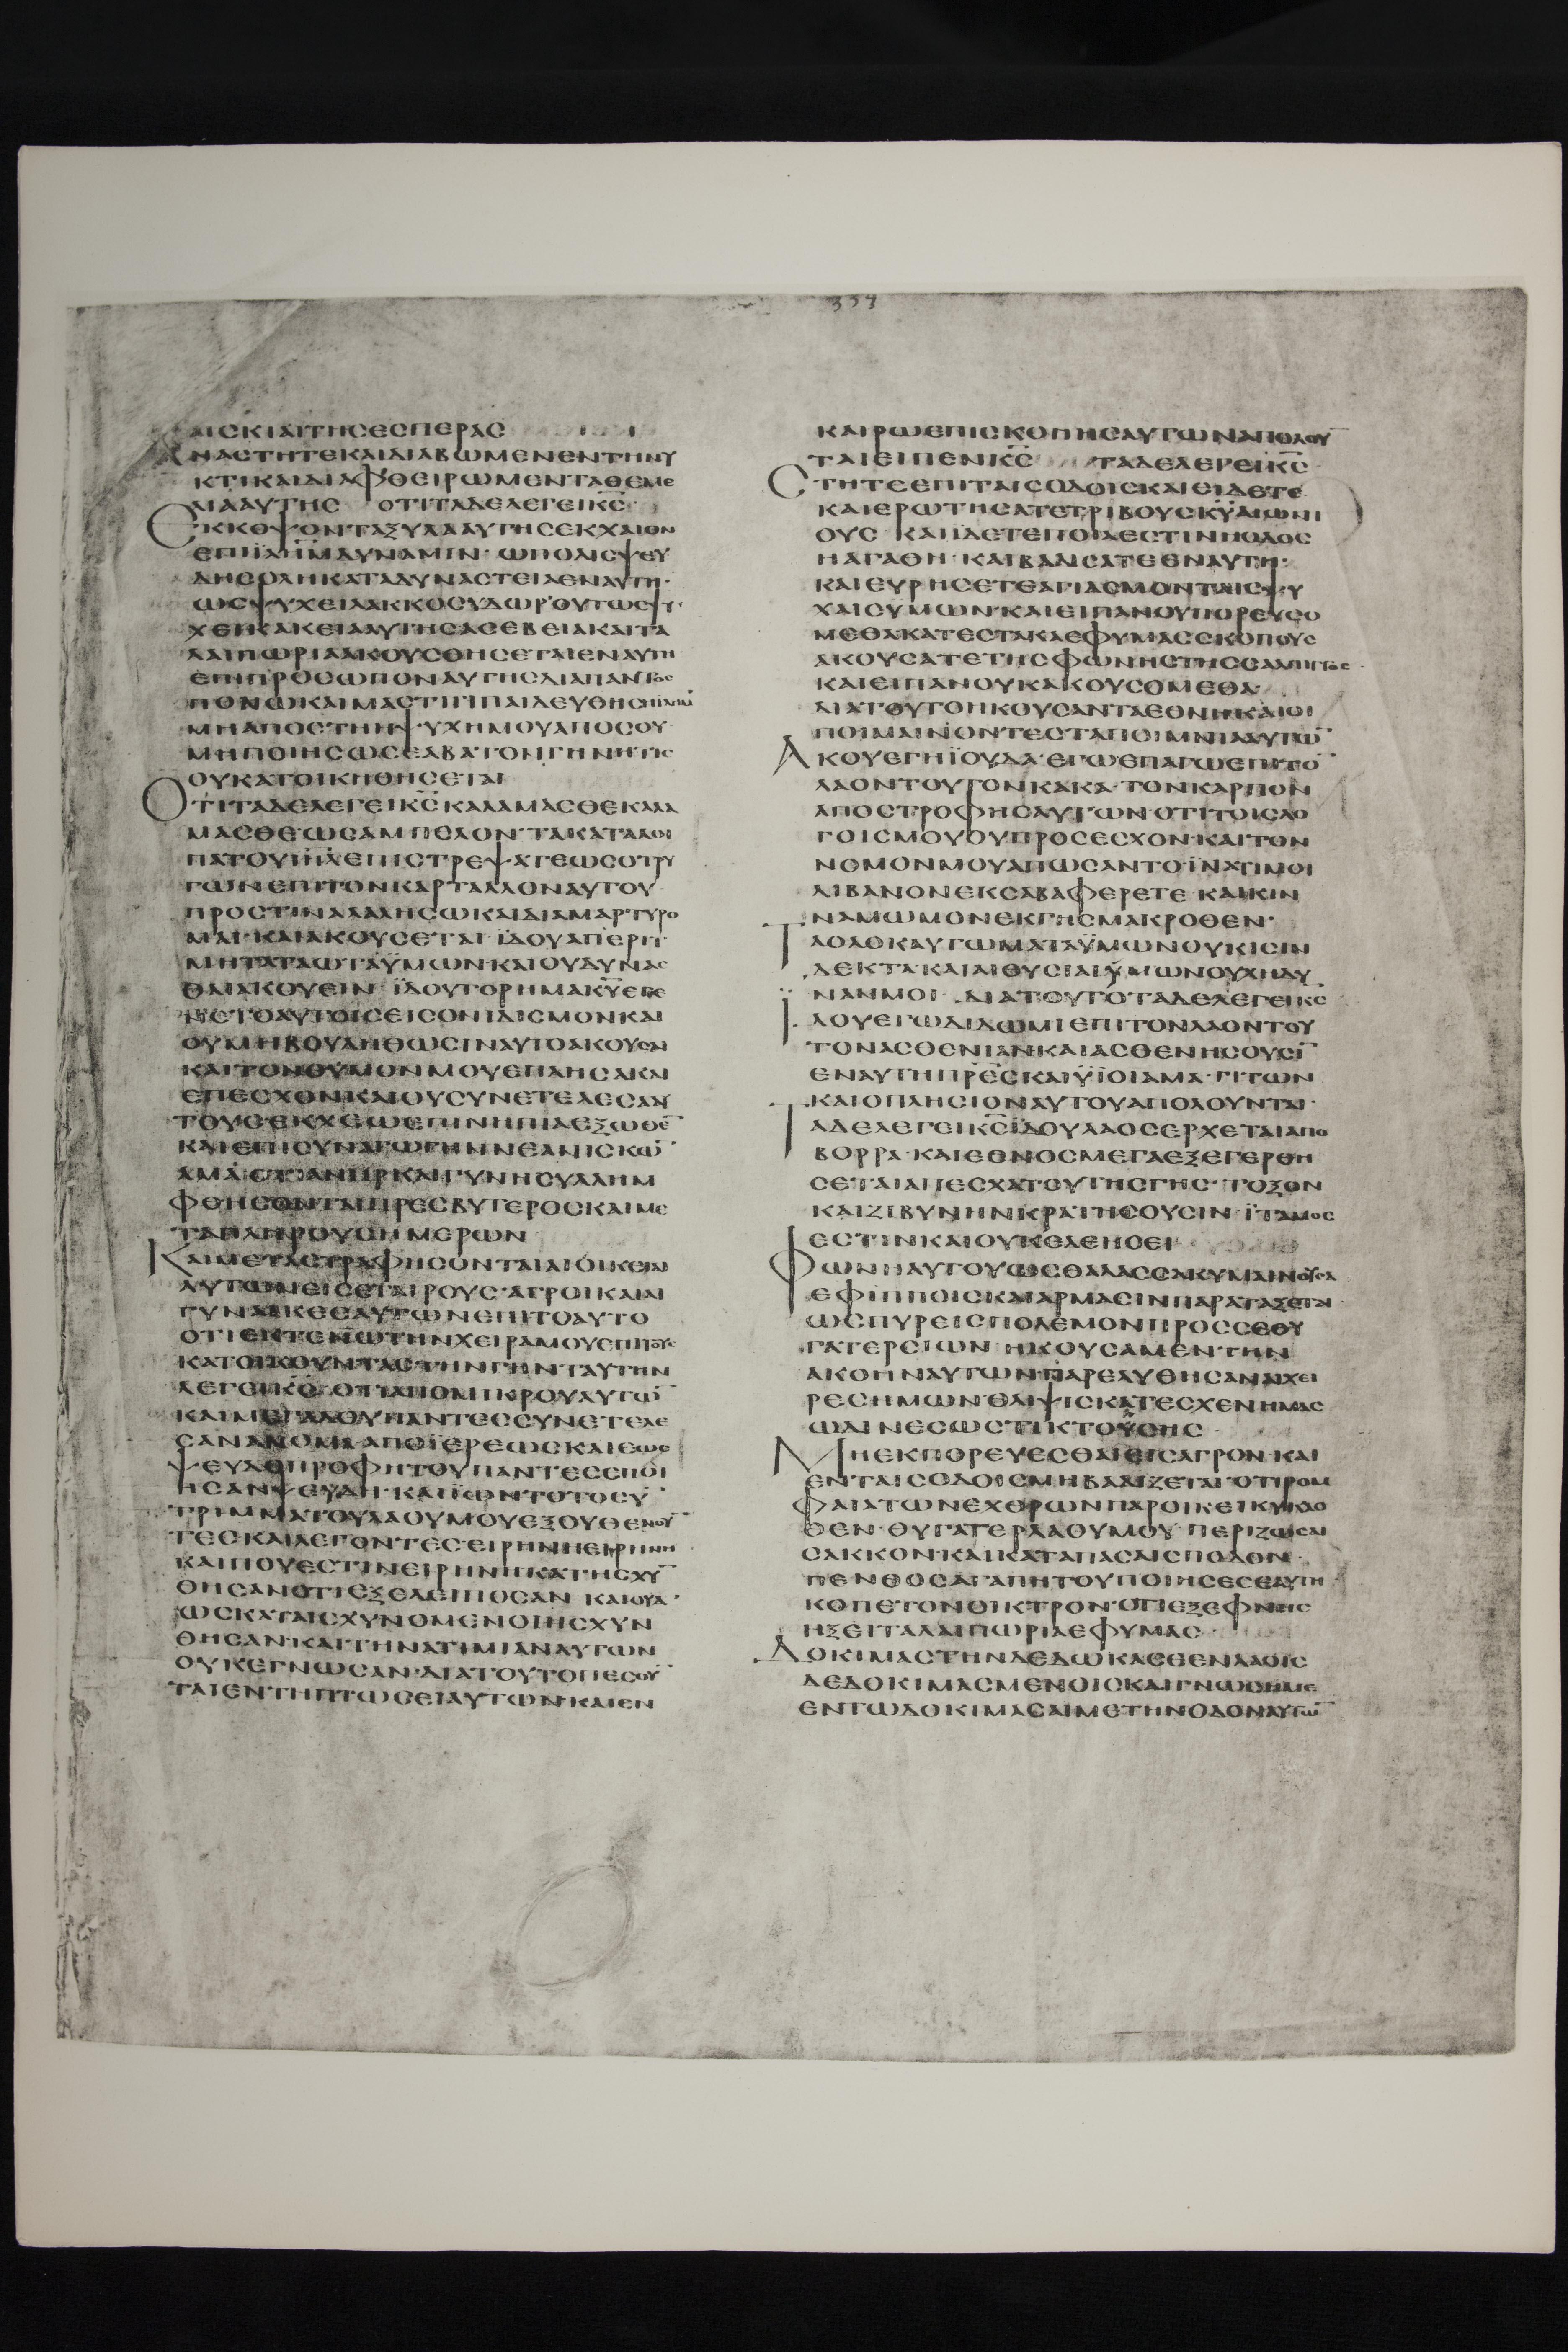 334
ΑΙΣΚΙΑΙΤΗΣΕΣΠΕΡΑΣ
ΑΝΑΣΤΗΤΕΚΑΙΔΙΑΒΩΜΕΝΕΝΤΗΝΥ
ΚΤΙΚΑΙΔΙΑΦΘΕΙΡΩΜΕΝΤΑΘΕΜΕ
ΛΙΑΑΥΤΗΣ ΟΤΙΤΑΔΕΛΕΓΕΙΚ̅Σ̅
ΕΚΚΟΨΟΝΤΑΞΥΛΑΑΥΤΗΣΕΚΧΑΙΟΝ
ΕΠΙΙ̅Λ̅Η̅Μ̅ΔΥΝΑΜΙΝ· ΩΠΟΛΙΣΨΕΥ
ΔΗΣΟΛΗΚΑΤΑΔΥΝΑΣΤΕΙΑΕΝΑΥΤΗ·
ΩΣΨΥΧΕΙΛΑΚΚΟΣΥΔΩΡΟΥΤΩΣΨΥ
ΧΕΙΚΑΚΕΙΑΑΥΤΗΣΑΣΕΒΕΙΑΚΑΙΤΑ
ΛΑΙΠΩΡΙΑΑΚΟΥΣΘΗΣΕΤΑΙΕΝΑΥΤΗ
ΕΠΙΠΡΟΣΩΠΟΝΑΥΤΗΣΔΙΑΠΑΝΤΟΣ
ΠΟΝΩΚΑΙΜΑΣΤΙΓΙΠΑΙΔΕΥΘΗΣΗΙ̅Λ̅Η̅Μ̅
ΜΗΑΠΟΣΤΗΗΨΥΧΗΜΟΥΑΠΟΣΟΥ
ΜΗΠΟΙΗΣΩΣΕΑΒΑΤΟΝΓΗΝΗΤΙΣ
ΟΥΚΑΤΟΙΚΗΘΗΣΕΤΑΙ
ΟΤΙΤΑΔΕΛΕΓΕΙΚ̅Σ̅ΚΑΛΑΜΑΣΘΕΚΑΛΑ
ΜΑΣΘΕ·ΩΣΑΜΠΕΛΟΝ·ΤΑΚΑΤΑΛΟΙ
ΠΑΤΟΥΙ̅Η̅Λ̅ΕΠΙΣΤΡΕΨΑΤΕΩΣΟΤΡΥ
ΓΩΝΕΠΙΤΟΝΚΑΡΤΑΛΛΟΝΑΥΤΟΥ
ΠΡΟΣΤΙΝΑΛΑΛΗΣΩΚΑΙΔΙΑΜΑΡΤΥΡΟ
ΜΑΙ·ΚΑΙΑΚΟΥΣΕΤΑΙ ΪΔΟΥΑΠΕΡΙΤ
ΜΗΤΑΤΑΩΤΑΫΜΩΝ·ΚΑΙΟΥΔΥΝΑΣ
ΘΑΙΑΚΟΥΕΙΝ ΪΔΟΥΤΟΡΗΜΑΚ̅Υ̅ΕΓΕ
ΝΕΤΟΑΥΤΟΙΣΕΙΣΟΝΙΔΙΣΜΟΝΚΑΙ
ΟΥΜΗΒΟΥΛΗΘΩΣΙΝΑΥΤΟΑΚΟΥΣΑΙ
ΚΑΙΤΟΝΘΥΜΟΝΜΟΥΕΠΛΗΣΑΚΑΙ
ΕΠΕΣΧΟΝΚΑΙΟΥΣΥΝΕΤΕΛΕΣΑΑΥ
ΤΟΥΣ·ΕΚΧΕΩΕΠΙΝΗΠΙΑΕΞΩΘΕ̅
ΚΑΙΕΠΙΣΥΝΑΓΩΓΗΝΝΕΑΝΙΣΚΩ̅
ΑΜΑ·ΟΤΙΑΝΗΡΚΑΙΓΥΝΗΣΥΛΛΗΜ
ΦΘΗΣΟΝΤΑΙΠΡΕΣΒΥΤΕΡΟΣΚΑΙΜΕ
ΤΑΠΛΗΡΟΥΣΗΜΕΡΩΝ
ΚΑΙΜΕΤΑΣΤΡΑΦΗΣΟΝΤΑΙΑΙΟΙΚΕΙΑΙ
ΑΥΤΩΝΕΙΣΕΤΑΙΡΟΥΣ·ΑΓΡΟΙΚΑΙΑΙ
ΓΥΝΑΙΚΕΣΑΥΤΩΝΕΠΙΤΟΑΥΤΟ
ΟΤΙΕΚΤΕΝΩΤΗΝΧΕΙΡΑΜΟΥΕΠΙΤΟΥΣ
ΚΑΤΟΙΚΟΥΝΤΑΣΤΗΝΓΗΝΤΑΥΤΗΝ
ΛΕΓΕΙΚ̅Σ̅·ΟΤΙΑΠΟΜΙΚΡΟΥΑΥΤΩ̅
ΚΑΙΜΕΓΑΛΟΥΠΑΝΤΕΣΣΥΝΕΤΕΛΕ
ΣΑΝΑΝΟΜΑ·ΑΠΟΪΕΡΕΩΣΚΑΙΕΩΣ
ΨΕΥΔΟΠΡΟΦΗΤΟΥΠΑΝΤΕΣΕΠΟΙ
ΗΣΑΝΨΕΥΔΗ·ΚΑΙΪΩΝΤΟΤΟΣΥ̅
ΤΡΙΜΜΑΤΟΥΛΑΟΥΜΟΥΕΞΟΥΘΕΝΟΥ̅
ΤΕΣΚΑΙΛΕΓΟΝΤΕΣΕΙΡΗΝΗΕΙΡΗΝΗ
ΚΑΙΠΟΥΕΣΤΙΝΕΙΡΗΝΗΚΑΤΗΣΧΥ̅
ΘΗΣΑΝΟΤΙΕΞΕΛΕΙΠΟΣΑΝ ΚΑΙΟΥΔ
ΩΣΚΑΤΑΙΣΧΥΝΟΜΕΝΟΙΗΣΧΥΝ
ΘΗΣΑΝ·ΚΑΙΤΗΝΑΤΙΜΙΑΝΑΥΤΩΝ
ΟΥΚΕΓΝΩΣΑΝ·ΔΙΑΤΟΥΤΟΠΕΣΟΥ̅
ΤΑΙΕΝΤΗΠΤΩΣΕΙΑΥΤΩΝ·ΚΑΙΕΝ
ΚΑΙΡΩΕΠΙΣΚΟΠΗΣΑΥΤΩΝΑΠΟΛΟΥ̅
ΤΑΙΕΙΠΕΝΚ̅Σ̅ ΤΑΔΕΛΕΓΕΙΚ̅Σ̅
ΣΤΗΤΕΕΠΙΤΑΙΣΟΔΟΙΣΚΑΙΕΙΔΕΤΕ
ΚΑΙΕΡΩΤΗΣΑΤΕΤΡΙΒΟΥΣΚ̅Υ̅ΑΙΩΝΙ
ΟΥΣ ΚΑΙΪΔΕΤΕΠΟΙΑΕΣΤΙΝΗΟΔΟΣ
ΗΑΓΑΘΗ·ΚΑΙΒΑΔΙΣΑΤΕΕΝΑΥΤΗ·
ΚΑΙΕΥΡΗΣΕΤΕΑΓΙΑΣΜΟΝΤΑΙΣΨΥ
ΧΑΙΣΥΜΩΝ·ΚΑΙΕΙΠΑΝΟΥΠΟΡΕΥΣΟ
ΜΕΘΑΚΑΤΕΣΤΑΚΑΕΦΥΜΑΣΣΚΟΠΟΥΣ
ΑΚΟΥΣΑΤΕΤΗΣΦΩΝΗΣΤΗΣΣΑΛΠΙΓΓΟΣ
ΚΑΙΕΙΠΑΝΟΥΚΑΚΟΥΣΟΜΕΘΑ·
ΔΙΑΤΟΥΤΟΗΚΟΥΣΑΝΤΑΕΘΝΗΚΑΙΟΙ
ΠΟΙΜΑΙΝΟΝΤΕΣΤΑΠΟΙΜΝΙΑΑΥΤΩ̅
ΑΚΟΥΕΓΗΪΟΥΔΑ·ΕΓΩΕΠΑΓΩΕΠΙΤΟ̅
ΛΑΟΝΤΟΥΤΟΝΚΑΚΑ·ΤΟΝΚΑΡΠΟΝ
ΑΠΟΣΤΡΟΦΗΣΑΥΤΩΝ·ΟΤΙΤΟΙΣΛΟ
ΓΟΙΣΜΟΥΟΥΠΡΟΣΕΣΧΟΝ·ΚΑΙΤΟΝ
ΝΟΜΟΝΜΟΥΑΠΩΣΑΝΤΟ·ΪΝΑΤΙΜΟΙ
ΛΙΒΑΝΟΝΕΚΣΑΒΑΦΕΡΕΤΕ·ΚΑΙΚΙΝ
ΝΑΜΩΜΟΝΕΚΓΗΣΜΑΚΡΟΘΕΝ·
ΤΑΟΛΟΚΑΥΤΩΜΑΤΑΫΜΩΝΟΥΚΙΣΙΝ
ΔΕΚΤΑ·ΚΑΙΑΙΘΥΣΙΑΙΫΜΩΝΟΥΧΗΔΥ
ΝΑΝΜΟΙ ΔΙΑΤΟΥΤΟΤΑΔΕΛΕΓΕΙΚ̅Σ̅
ΪΔΟΥΕΓΩΔΙΔΩΜΙΕΠΙΤΟΝΛΑΟΝΤΟΥ
ΤΟΝΑΣΘΕΝΙΑΝ·ΚΑΙΑΣΘΕΝΗΣΟΥΣΙ̅
ΕΝΑΥΤΗΠΡΕΣΚΑΙΫΙΟΙΑΜΑ·ΓΙΤΩΝ
ΚΑΙΟΠΛΗΣΙΟΝΑΥΤΟΥΑΠΟΛΟΥΝΤΑΙ·
ΤΑΔΕΛΕΓΕΙΚ̅Σ̅ΪΔΟΥΛΑΟΣΕΡΧΕΤΑΙΑΠΟ
ΒΟΡΡΑ·ΚΑΙΕΘΝΟΣΜΕΓΑΕΞΕΓΕΡΘΗ
ΣΕΤΑΙΑΠΕΣΧΑΤΟΥΤΗΣΓΗΣ·ΤΟΞΟΝ
ΚΑΙΖΙΒΥΝΗΝΚΡΑΤΗΣΟΥΣΙΝ·ΪΤΑΜΟΣ
ΕΣΤΙΝΚΑΙΟΥΚΕΛΕΗΣΕΙ
ΦΩΝΗΑΥΤΟΥΩΣΘΑΛΑΣΣΑΚΥΜΑΙΝΟΥΣΑ
ΕΦΙΠΠΟΙΣΚΑΙΑΡΜΑΣΙΝΠΑΡΑΤΑΞΕΤΑΙ
ΩΣΠΥΡΕΙΣΠΟΛΕΜΟΝΠΡΟΣΣΕΘΥ
ΓΑΤΕΡΣΙΩΝ ΗΚΟΥΣΑΜΕΝΤΗΝ
ΑΚΟΗΝΑΥΤΩΝΠΑΡΕΛΥΘΗΣΑΝΑΙΧΕΙ
ΡΕΣΗΜΩΝ·ΘΛΙΨΙΣΚΑΤΕΣΧΕΝΗΜΑΣ
ΩΔΙΝΕΣΩΣΤΙΚΤΟΥΣΗΣ
ΜΗΕΚΠΟΡΕΥΕΣΘΑΙΕΙΣΑΓΡΟΝ·ΚΑΙ
ΕΝΤΑΙΣΟΔΟΙΣΜΗΒΑΔΙΖΕΤΑΙ·ΟΤΙΡΟΜ
ΦΑΙΑΤΩΝΕΧΘΡΩΝΠΑΡΟΙΚΕΙΚΥΚΛΟ
ΘΕΝ·ΘΥΓΑΤΕΡΛΑΟΥΜΟΥ·ΠΕΡΙΖΩΣΑΙ
ΣΑΚΚΟΝ·ΚΑΙΚΑΤΑΠΑΣΑΙΣΠΟΔΟΝ·
ΠΕΝΘΟΣΑΓΑΠΗΤΟΥΠΟΙΗΣΕΣΕΑΥΤΗ
ΚΟΠΕΤΟΝΟΙΚΤΡΟΝ·ΟΤΙΕΞΕΦΝΗΣ
ΗΞΕΙΤΑΛΑΙΠΩΡΙΑΕΦΥΜΑΣ·
ΔΟΚΙΜΑΣΤΗΝΔΕΔΩΚΑΣΕΕΝΛΑΟΙΣ
ΔΕΔΟΚΙΜΑΣΜΕΝΟΙΣΚΑΙΓΝΩΣΗΜΕ
ΕΝΤΩΔΟΚΙΜΑΣΑΙΜΕΤΗΝΟΔΟΝΑΥΤΩ̅